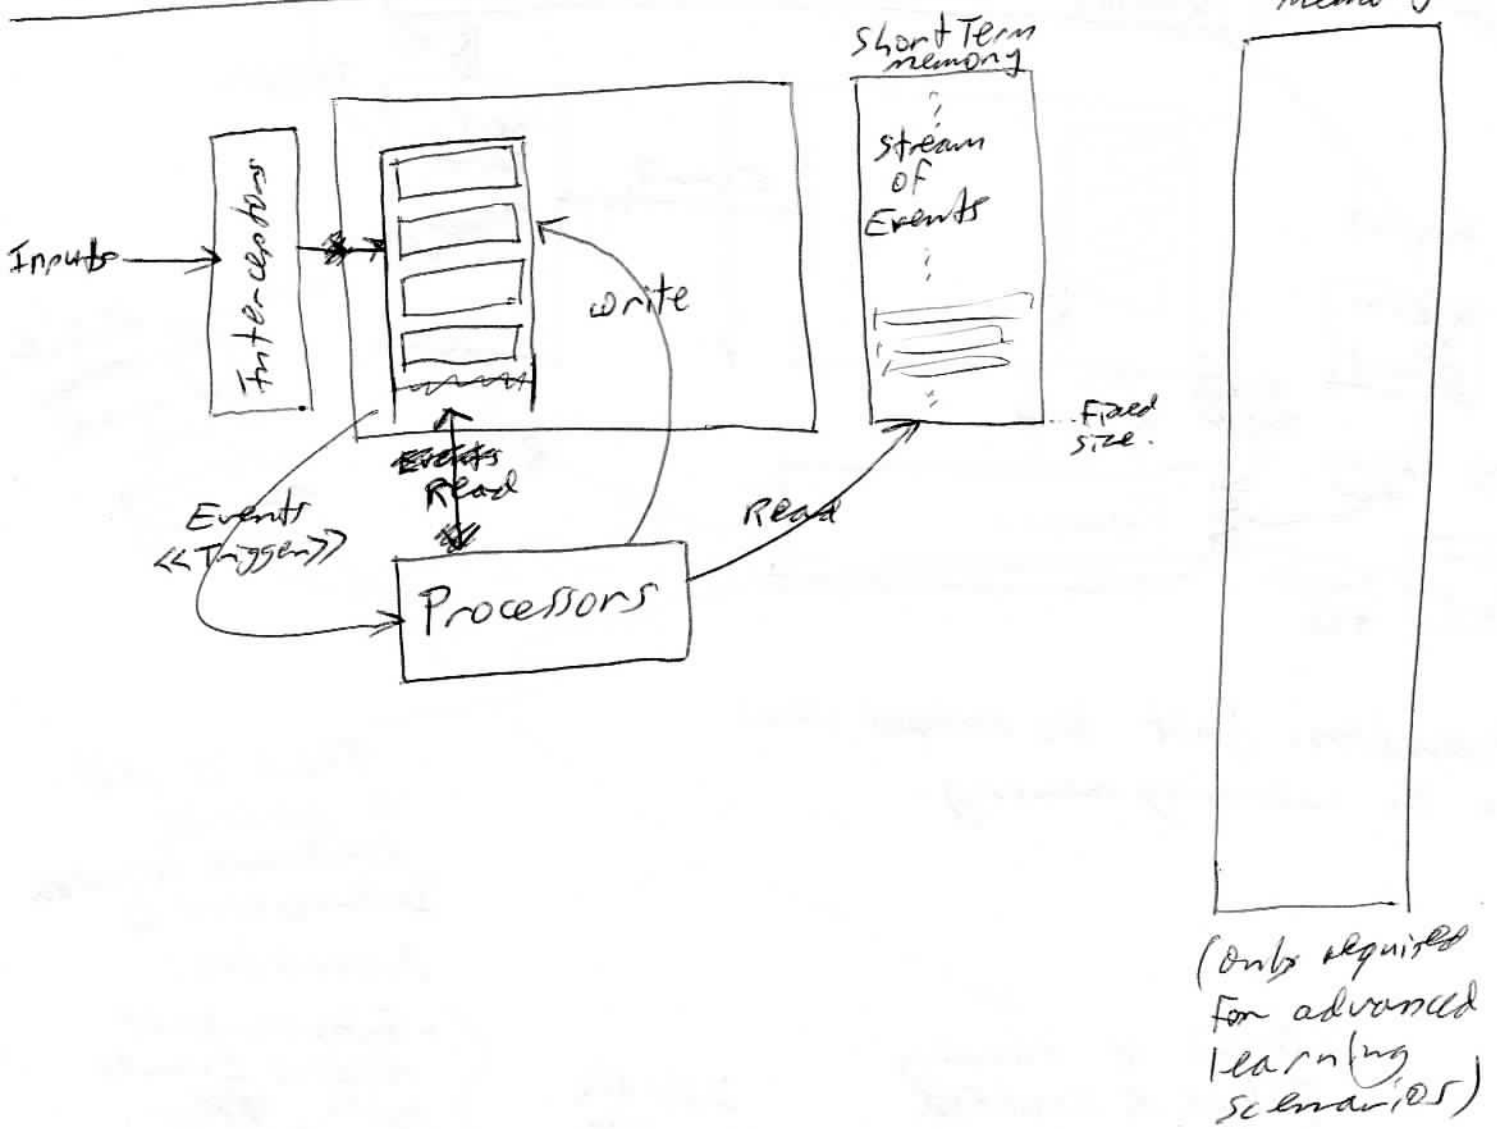 memory
Short Term
memory
Stream
of
Events
Inputs
Interceptors
write
Fixed
size.
Events
Read
Events
<<Trigger>>
Read
Processors
(only required
For advanced
learning
scenarios)